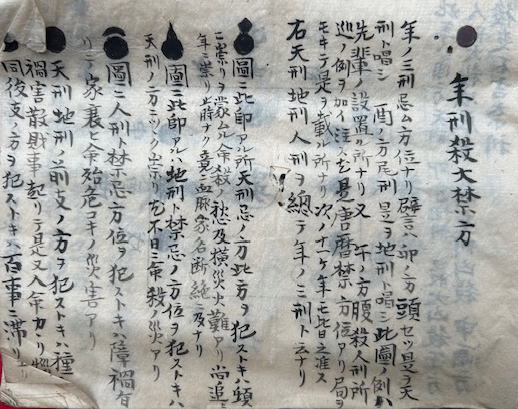 年刑殺大禁方
年ノ三刑忌ム方位ナリ譬ハ卯ノ方頭セツ是ヲ天
刑ト唱シ酉ノ方尾刑是ヲ地刑ト唱シ此圖ノ例ハ
先輩ノ設置ク所ナリ又午ノ方腰殺人刑所
巡ノ例ヲ加イ注ス是唐暦禁方位アリ局ヲ
モキテ是ヲ載ル所ナリ次ノ十二ケ年モ此日之准ス
右天刑地刑人刑ヲ總テ年ノ三刑ト云ナリ
圖ニ此印アル所天刑忌ノ方此方ヲ犯ストキハ頓
ニ崇リヲ蒙ム命殺ノ愁及橫災火難アリ尚追
年ニ崇リ止時ナク竟ニ血脈家名断絶ニ及ナリ
圖ニ此印アルハ地刑ト禁忌ノ方位ヲ犯ストキハ
天刑ノ方ミツク崇リモ不日ニ命殺ノ災アリ
圖ニ人刑ト禁忌方位ヲ犯ストキハ障禍有
リテ家衰ヒ命殆危コキノ災害アリ
天刑地刑ノ前支ノ方ヲ犯ストキハ種
禍害散財事起リテ是又人命カヽリ
同後支ノ方ヲ犯ストキハ百事ニ滞リ